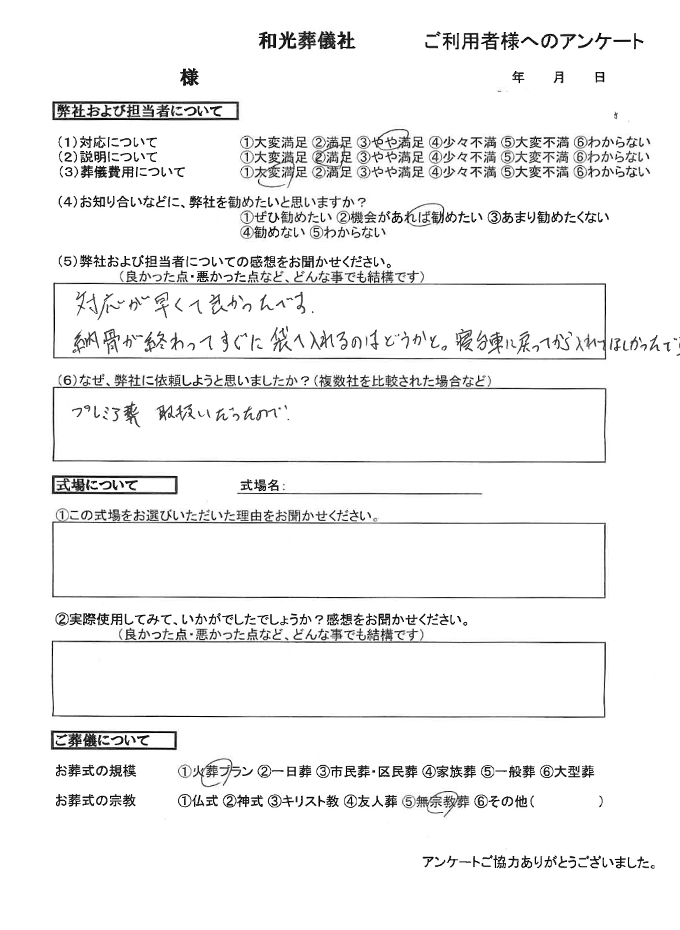 和光葬儀社 ご利用者様へのアンケート
様 年 月 日
弊社および担当者について
(1)対応について ①大変満足 ②満足 ③やや満足 ④少々不満 ⑤大変不満 ⑥わからない
(2)説明について ①大変満足 ②満足 ③やや満足 ④少々不満 ⑤大変不満 ⑥わからない
(3)葬儀費用について ①大変満足 ②満足 ③やや満足 ④少々不満 ⑤大変不満 ⑥わからない
(4)お知り合いなどに、弊社を勧めたいと思いますか?
①ぜひ勧めたい ②機会があれば勧めたい ③あまり勧めたくない
④勧めない ⑤わからない
(5)弊社および担当者についての感想をお聞かせください。
(良かった点・悪かった点など、どんな事でも結構です)
対応が早くて良かったです.
納骨が終わってすぐに袋へ入れるのはどうかと。寝台車に戻ってから入れてほしかったです
(6)なぜ、弊社に依頼しようと思いましたか?(複数社を比較された場合など)
プレミア葬 取扱いだったので.
式場について 式場名:
①この式場をお選びいただいた理由をお聞かせください。
②実際使用してみて、いかがでしたでしょうか?感想をお聞かせください。
(良かった点・悪かった点など、どんな事でも結構です)
ご葬儀について
お葬式の規模 ①火葬プラン ②一日葬 ③市民葬・区民葬 ④家族葬 ⑤一般葬 ⑥大型葬
お葬式の宗教 ①仏式 ②神式 ③キリスト教 ④友人葬 ⑤無宗教葬 ⑥その他( )
アンケートご協力ありがとうございました。